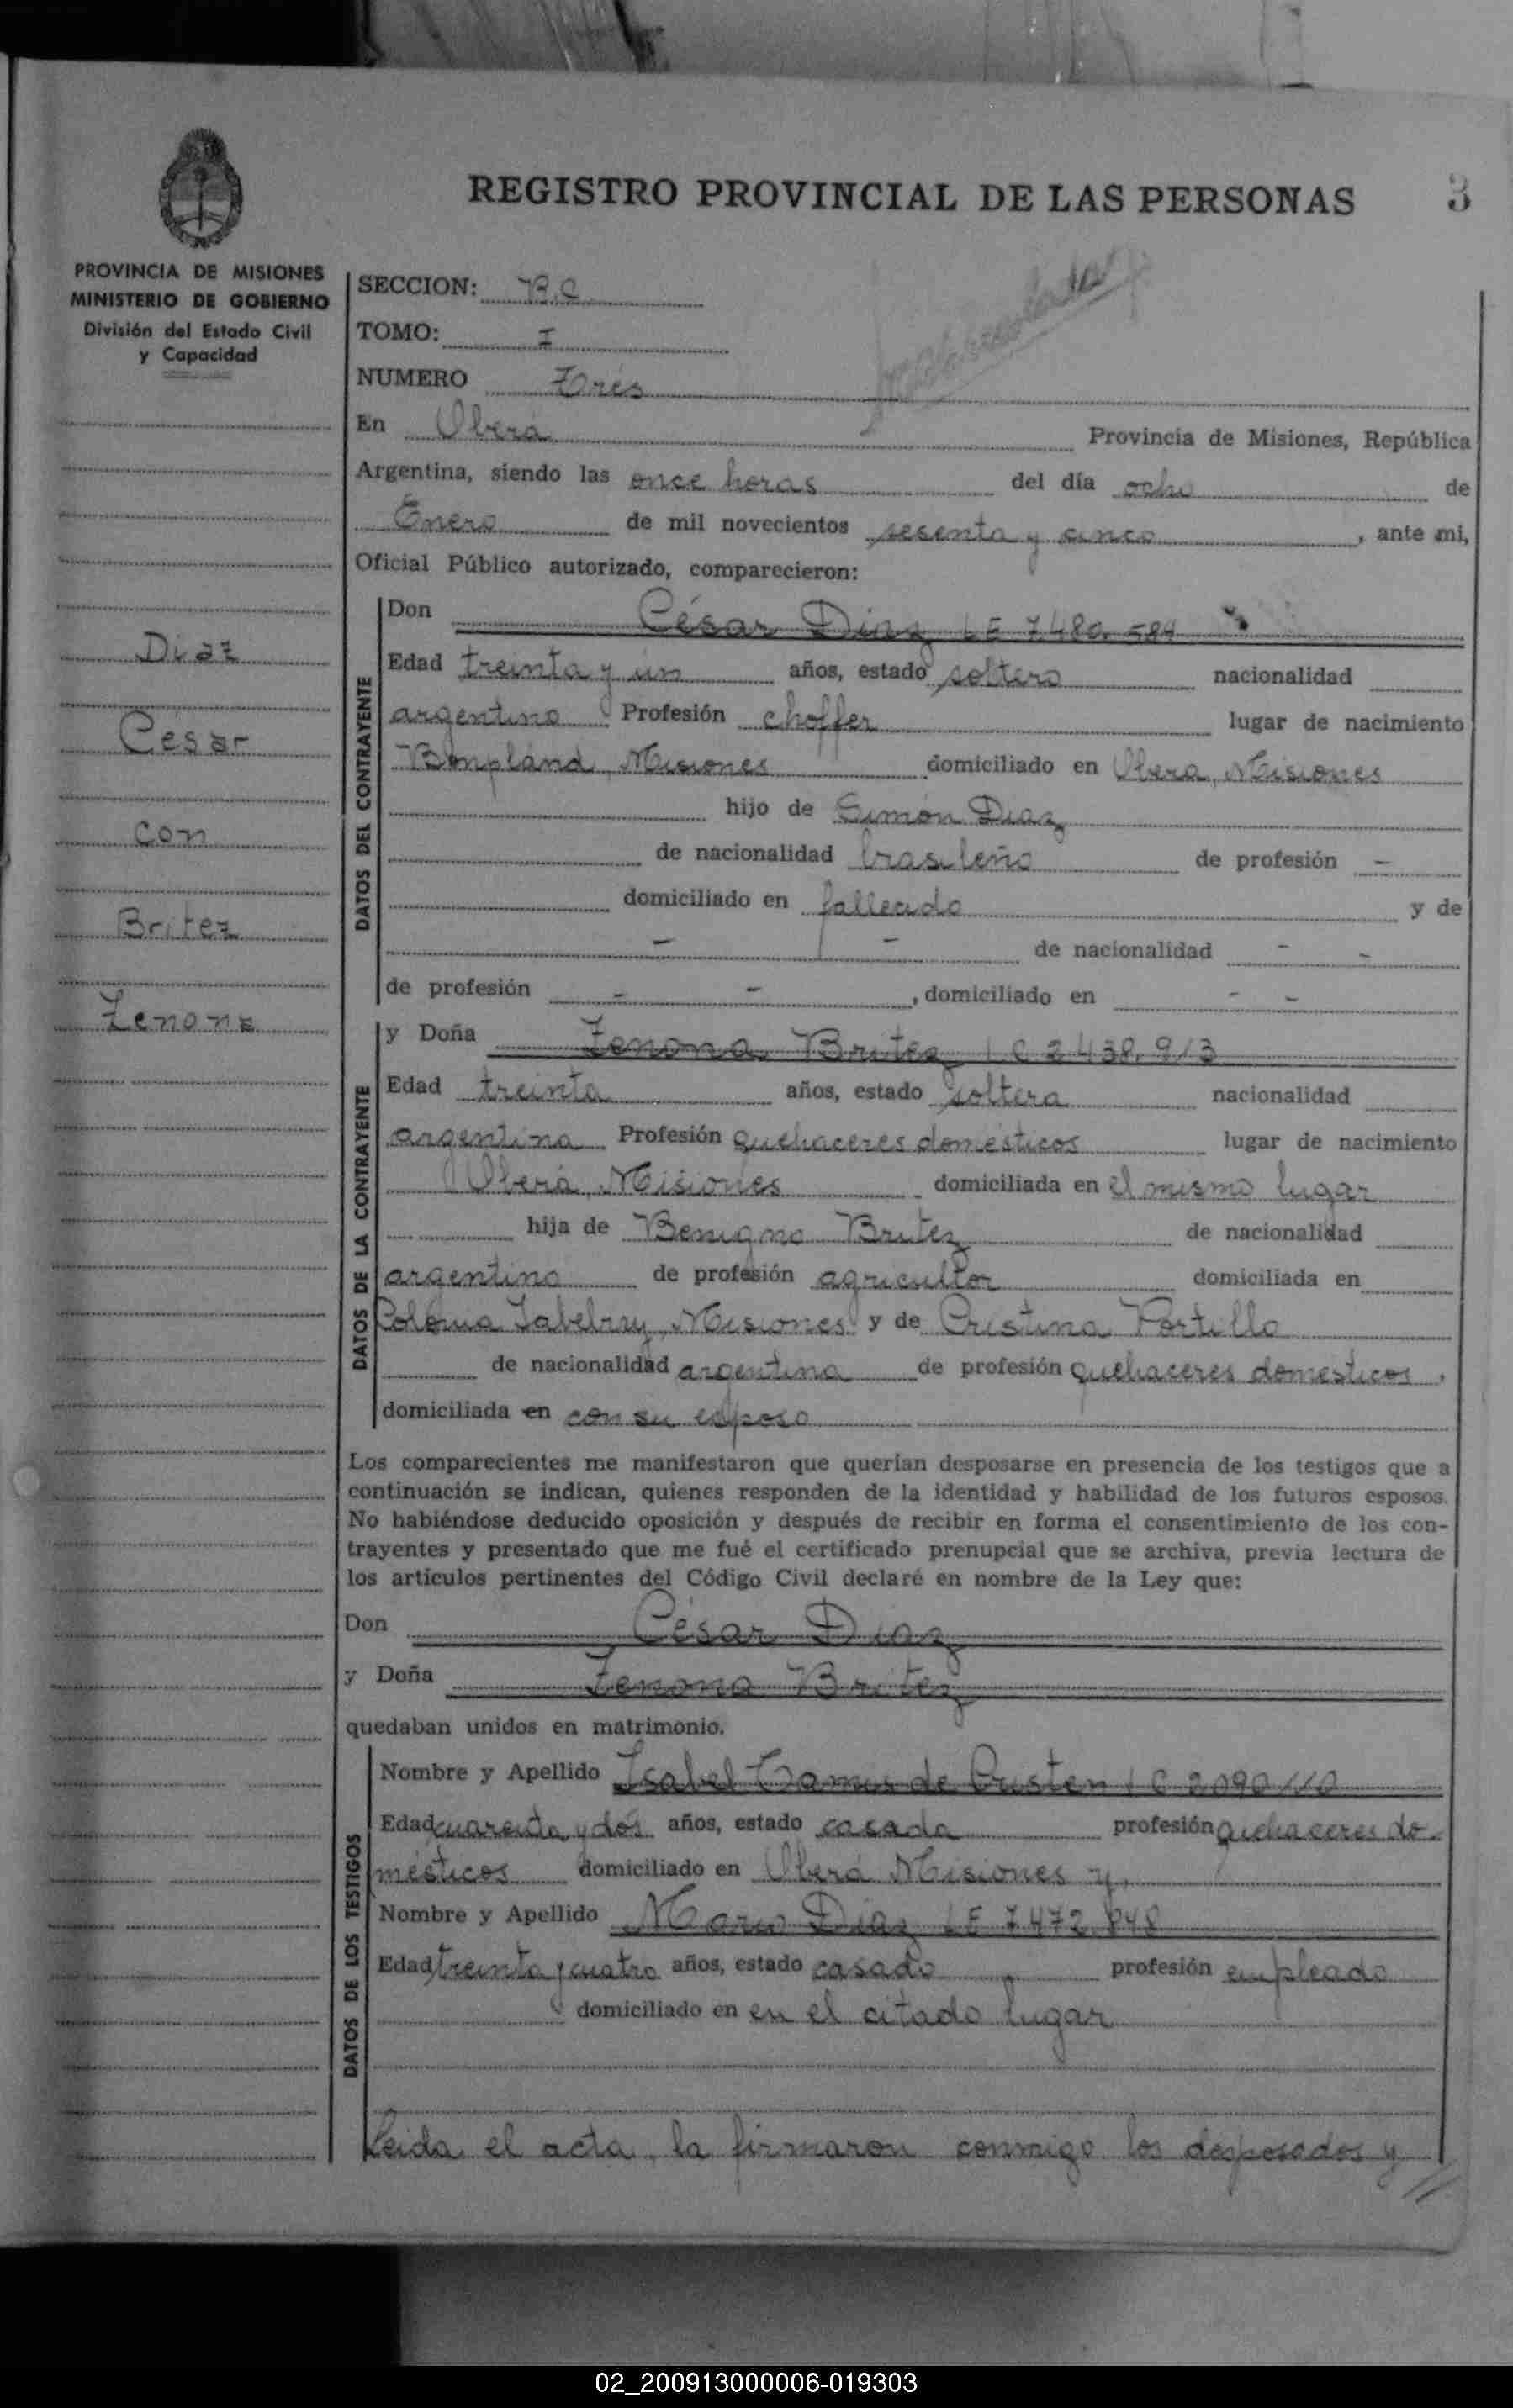 REGISTRO PROVINCIAL DE LAS PERSONAS 3
PROVINCIA DE MISIONES
MINISTERIO DE GOBIERNO
División del Estado Civil
y Capacidad
Diaz
César
con
Britez
Zenona
SECCION: B.C
TOMO: I
NUMERO Tres
En Oberá Provincia de Misiones, República
Argentina, siendo las once horas del día ocho de
Enero de mil novecientos sesenta y cinco, ante mi,
Oficial Público autorizado, comparecieron:
DATOS DEL CONTRAYENTE
Don César Diaz LE 7.480.584
Edad treinta y un años, estado soltero nacionalidad
argentino Profesión choffer lugar de nacimiento
Bompland, Misiones domiciliado en Oberá, Misiones
hijo de Simón Diaz
de nacionalidad brasileño de profesión -
domiciliado en fallecido y de
- - de nacionalidad - -
de profesión - - , domiciliado en - -
DATOS DE LA CONTRAYENTE
y Doña Zenona Britez LC 2.438.913
Edad treinta años, estado soltera nacionalidad
argentina Profesión quehaceres domésticos lugar de nacimiento
Oberá, Misiones domiciliada en el mismo lugar
hija de Benigno Britez de nacionalidad
argentino de profesión agricultor domiciliada en
Colonia Yabebiry, Misiones y de Cristina Portillo
de nacionalidad argentina de profesión quehaceres domesticos,
domiciliada en con su esposo
Los comparecientes me manifestaron que querían desposarse en presencia de los testigos que a
continuación se indican, quienes responden de la identidad y habilidad de los futuros esposos.
No habiéndose deducido oposición y después de recibir en forma el consentimiento de los con-
trayentes y presentado que me fué el certificado prenupcial que se archiva, previa lectura de
los artículos pertinentes del Código Civil declaré en nombre de la Ley que:
Don César Diaz
y Doña Zenona Britez
quedaban unidos en matrimonio.
DATOS DE LOS TESTIGOS
Nombre y Apellido Isabel de LC
Edad cuarenta y dos años, estado casada profesión quehaceres do-
mésticos domiciliado en Oberá Misiones y,
Nombre y Apellido Mario Diaz LE 7.472.848
Edad treinta y cuatro años, estado casado profesión empleado
domiciliado en en el citado lugar
Leida el acta, la firmaron conmigo los desposados y //
02_200913000006-019303